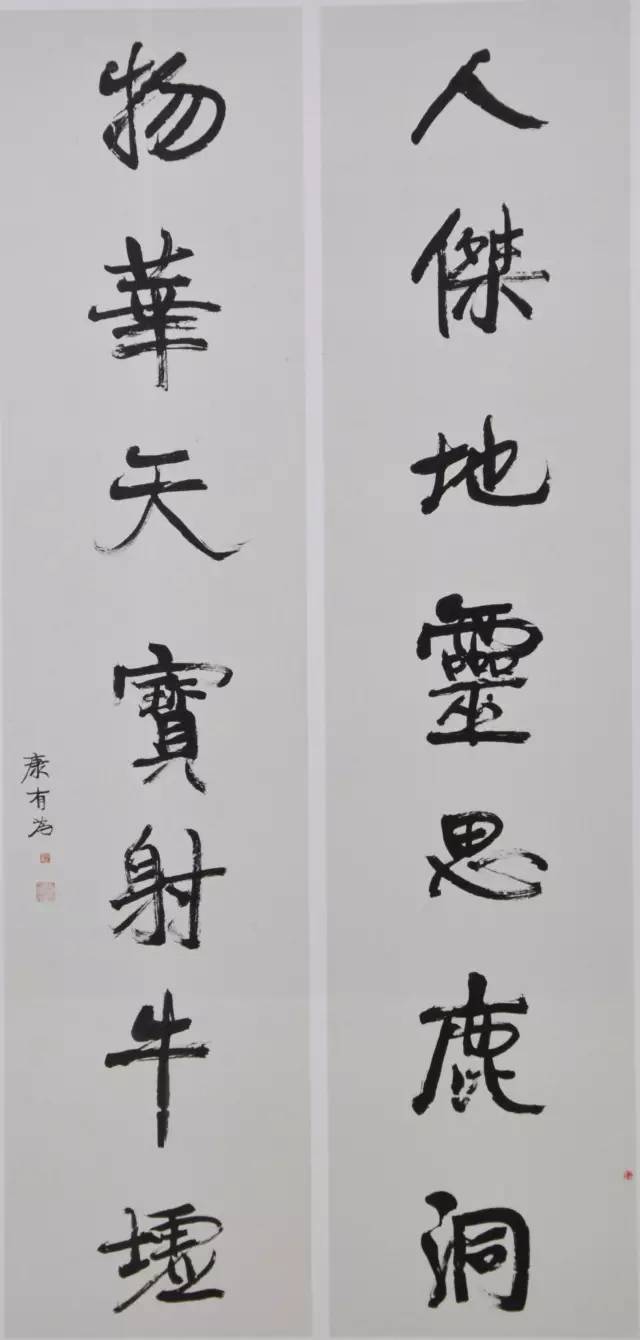 人傑地靈思鹿洞
物華天寶射牛墟
康有為